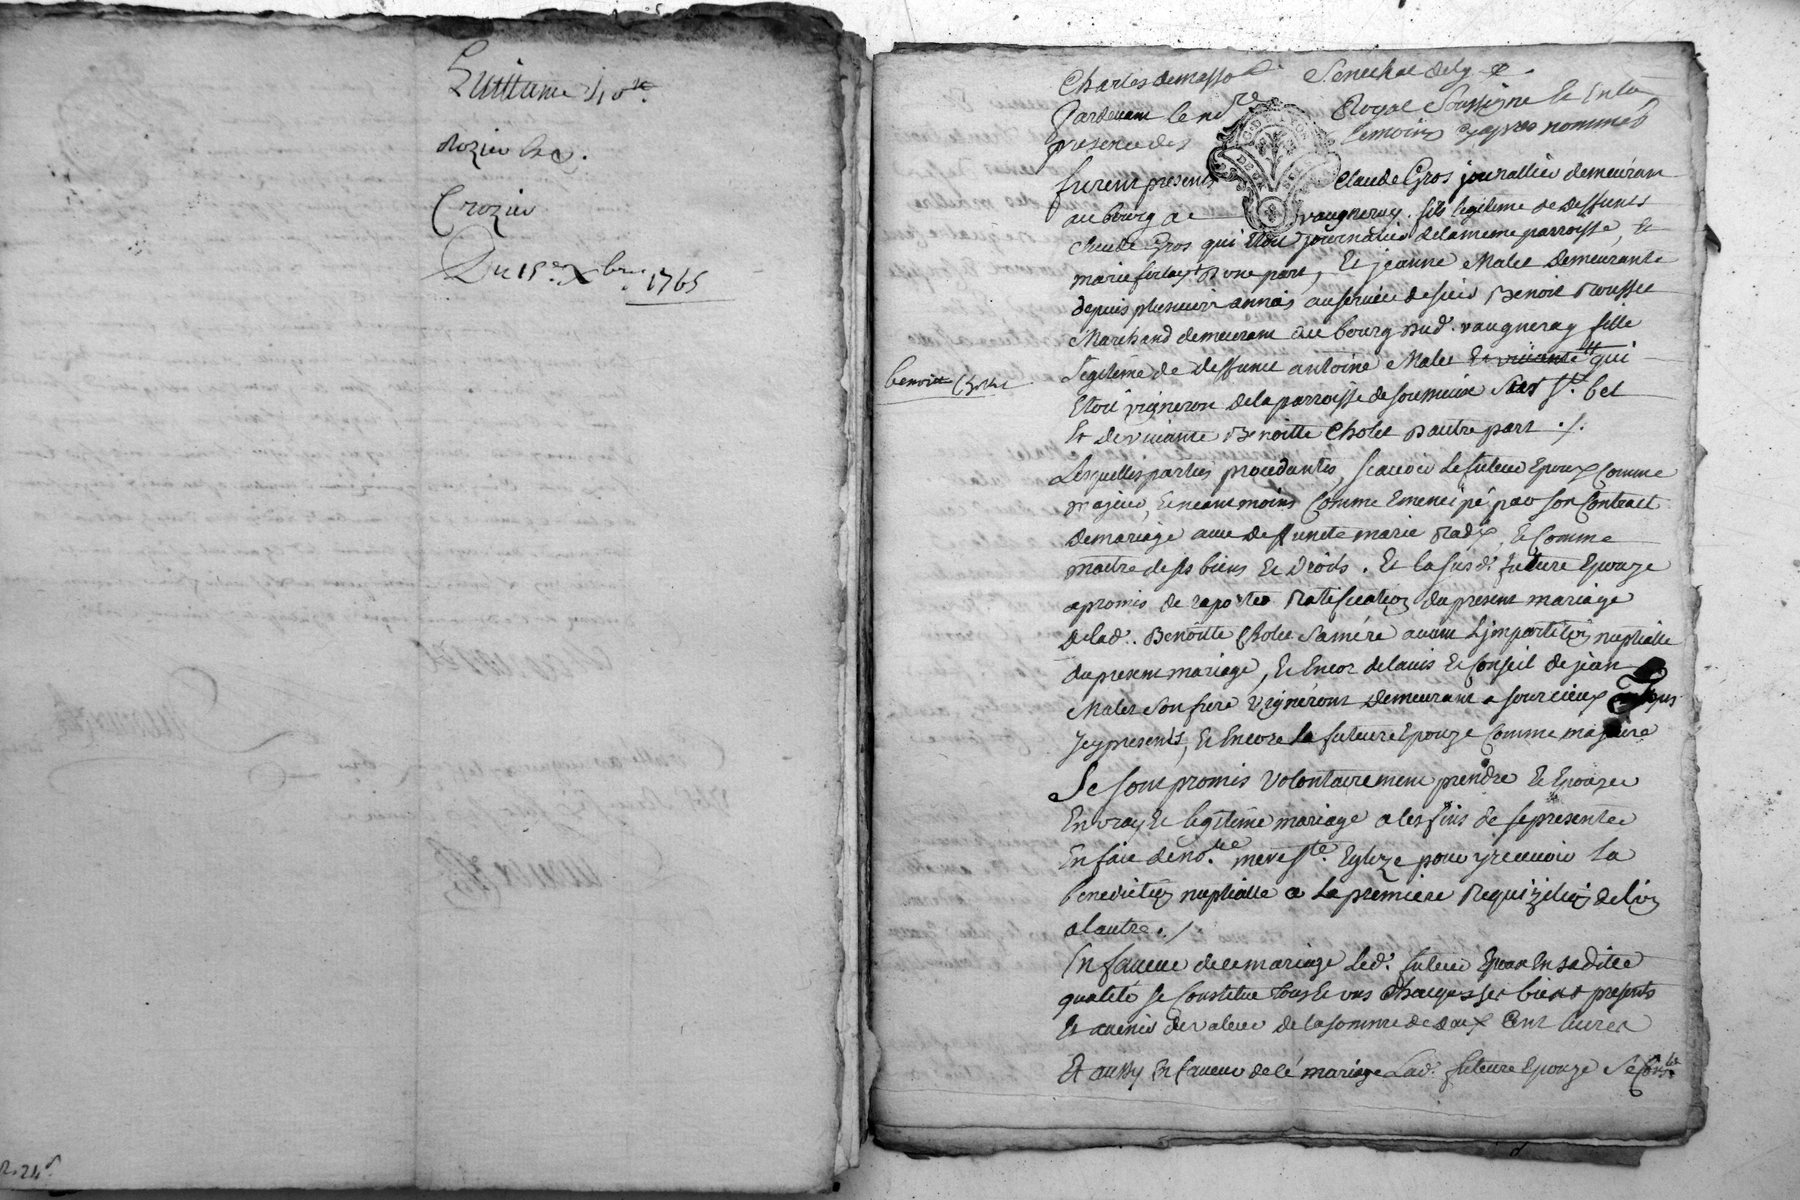 Guillaume
Rozier
Crozier
Du 15e Xbre 1765
R. 24s
Charles demasso Senechal de Ly
Pardevant le nore Royal soussigné et en la
presence des temoins cy apres nommés
furent presents Claude Gros journallier demeurant
au bourg de vaugneray. fils legitime de deffunts
Claude Gros qui etoit journalier de la meme parroisse, et
marie d'une part, Et jeanne Malet demeurante
depuis plusieurs années au service de sieur Benoit Rousset
Marchand demeurant au bourg dud. vaugneray fille
Benoitte Cholet
Legiteme de deffunct antoine Malet qui
Etoit vigneron de la parroisse de sourcieux sur St. bel
Et de vivante Benoitte Cholet D'autre part ./.
Lesquelles parties procedantes, scavoir Le futeur Epoux Comme
majeur, Et neantmoins Comme Emencipé par son Contract
de mariage avec deffuncte marie Radix, Et Comme
maitre de ses biens Et Droits. Et la susd. future Epouze
a promis de raporter Ratification du present mariage
de lad. Benoitte Cholet sa mére avant L'impartition nuptialle
du present mariage, Et Encor de l'avis Et Conseil de jean
Malet son frere vigneront Demeurant a sourcieux
jcy presents, Et Encore la futeure Epouze Comme majeure
Se sont promis volontairement prendre Et Epouzer
En vray Et legiteme mariage a les fins de se presenter
En face de note. mere Ste. Eglize pour y recevoir La
benediction nuptialle a La premiere Requizition de l'un
a l'autre. /
En faveur de ce mariage Led. futeur Epoux En sa ditte
qualité se Constitue tous Et uns Chacuns ses biens presents
Et avenir de valeur de la somme de deux Cent livres
Et aussy En faveur de cé mariage Lad. futeure Epouze se Conste